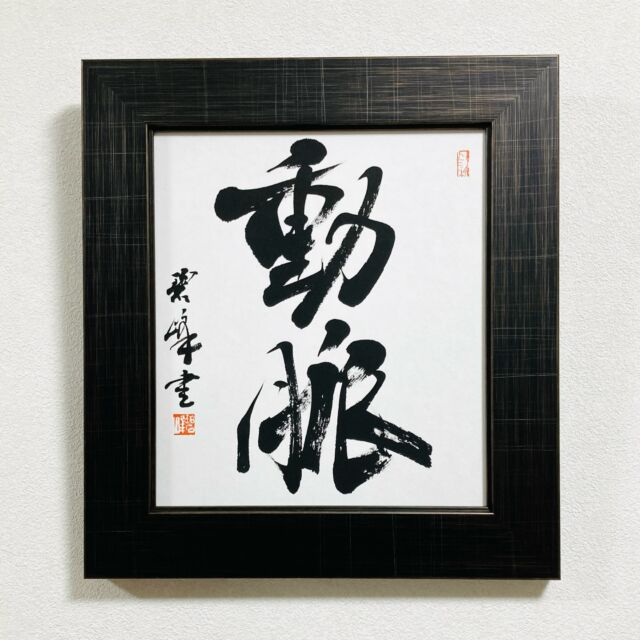 動脈
峰書